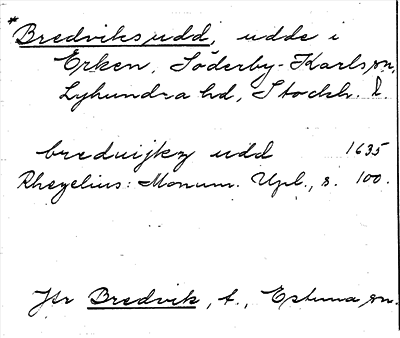 *Bredviksudd, udde i
Erken, Söderby-Karls sn,
Lyhundra hd, Stockh. l.
breduijkz udd 1635
Rhezelius: Monum. Upl., s. 100.
Jfr Bredvik, t., Estuna sn.